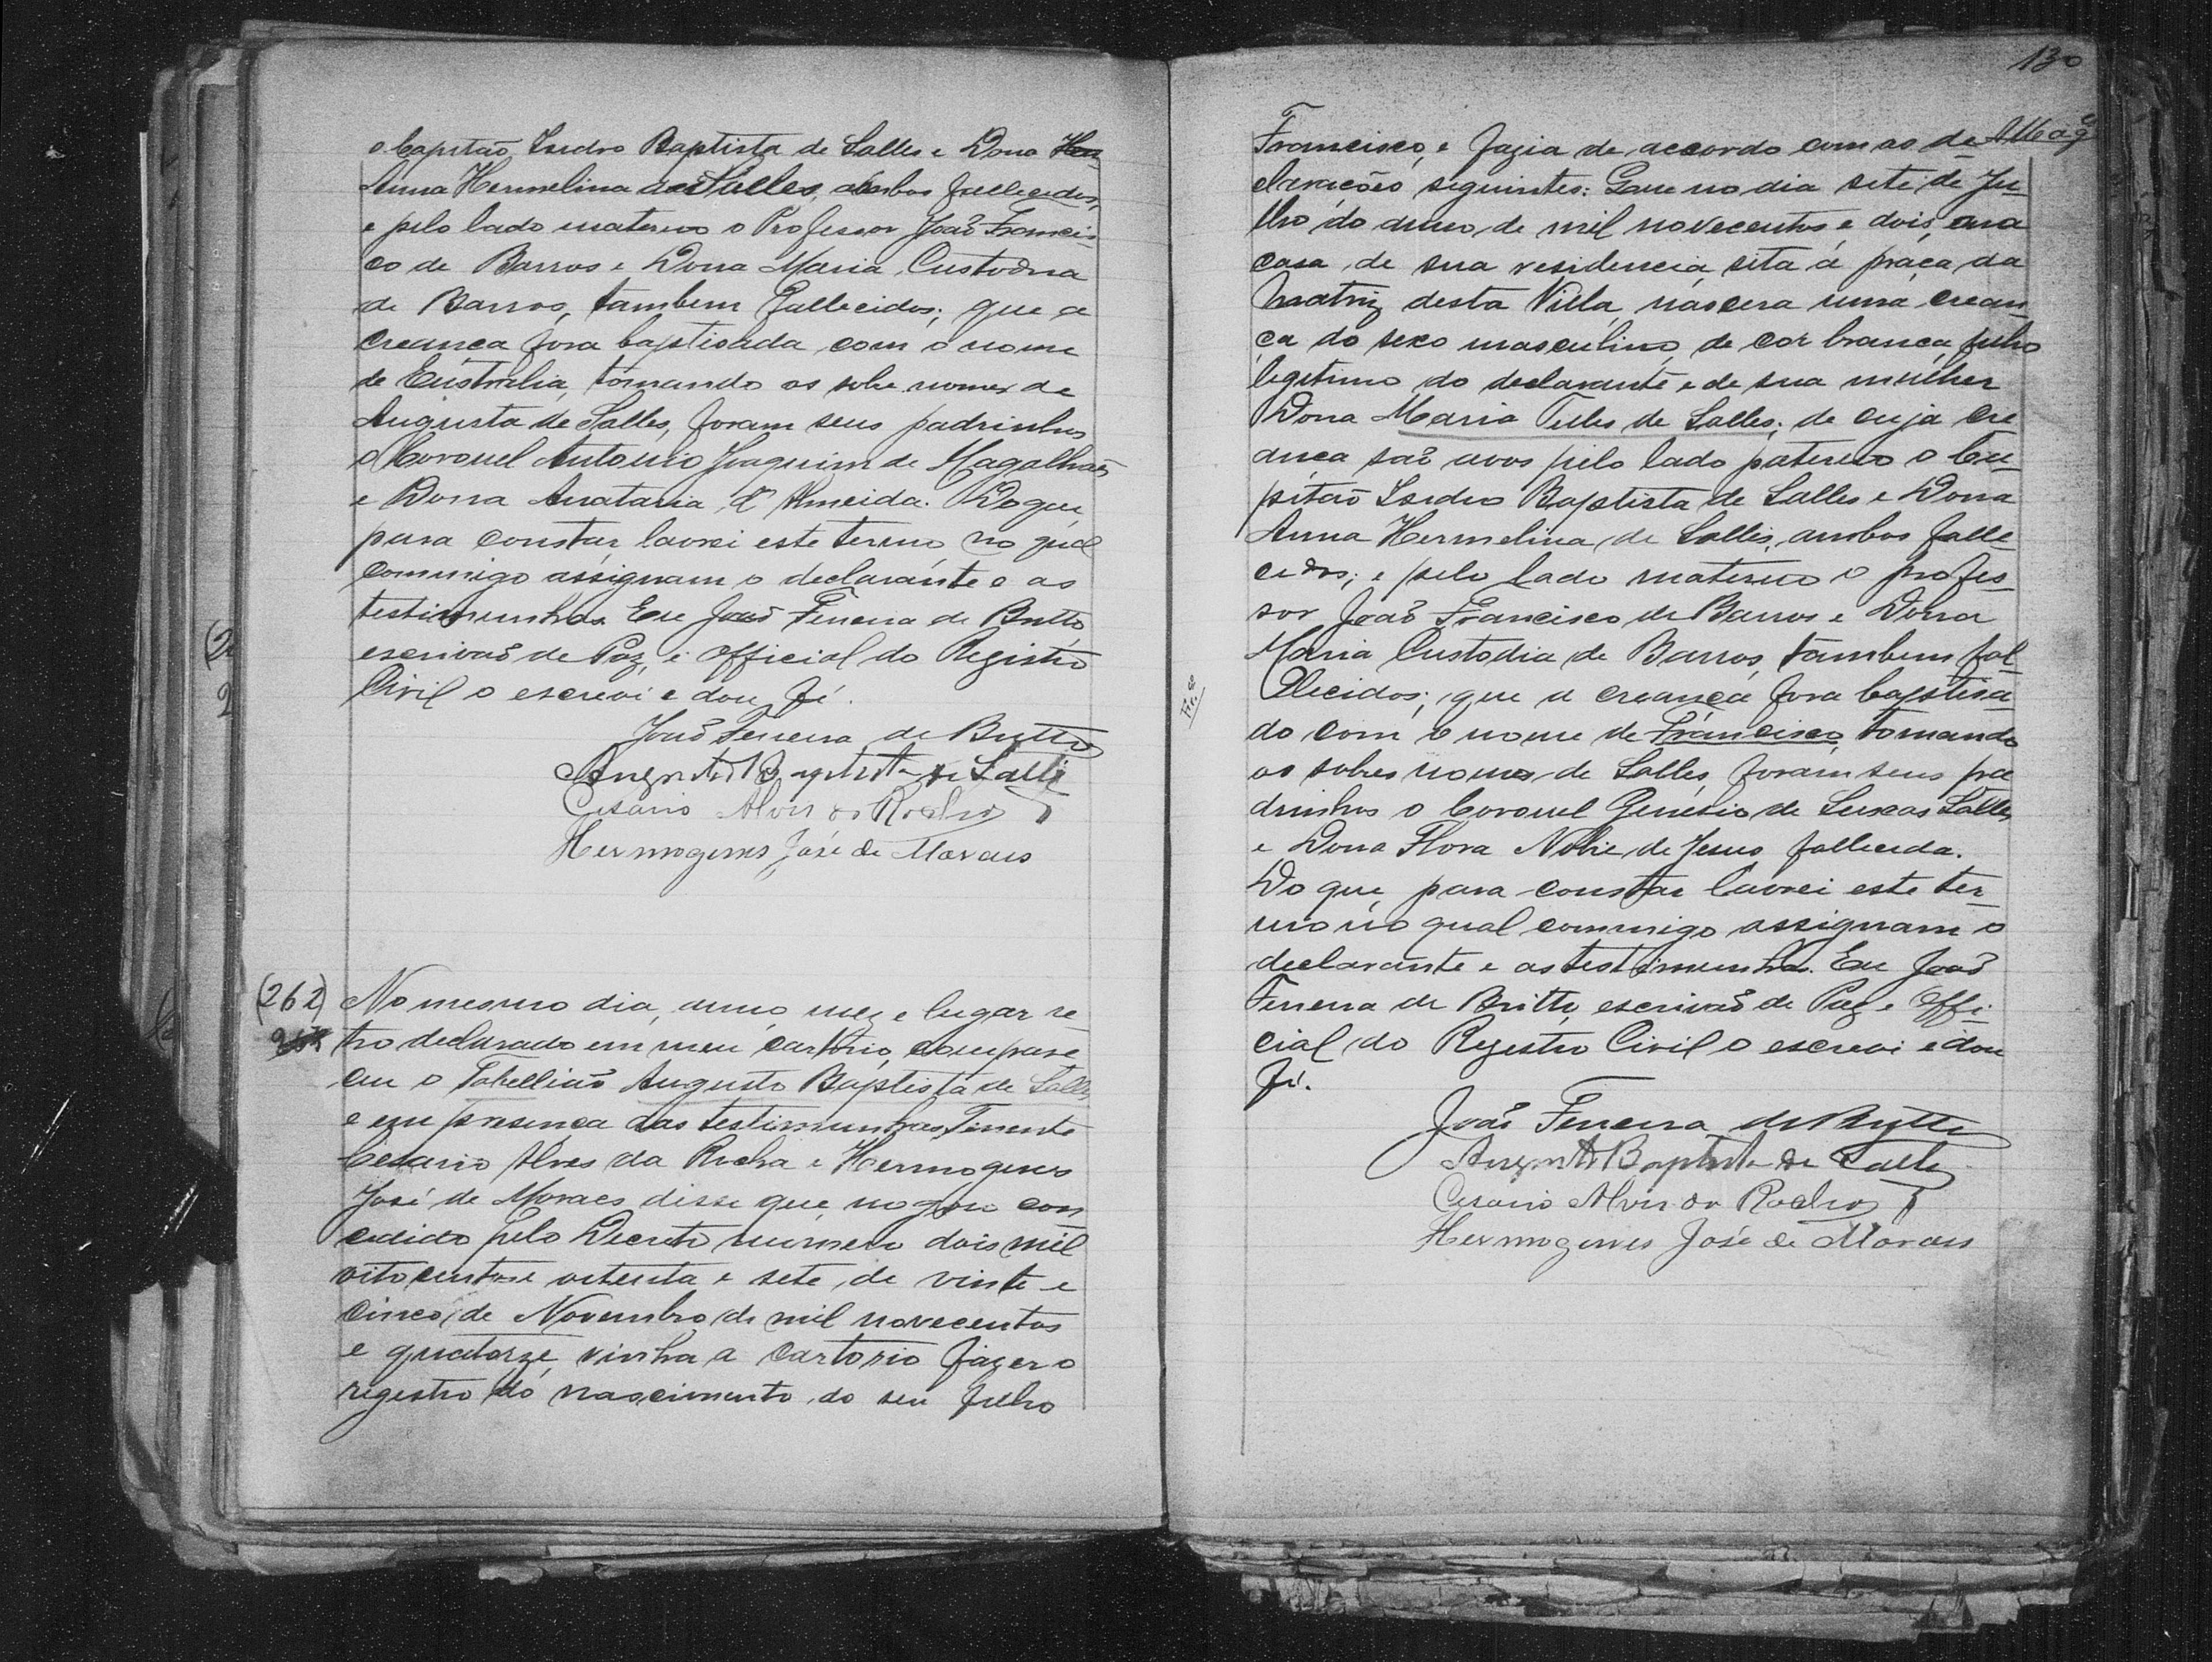 o Capitão Izidro Baptista de Salles e Dona Her
Anna Hermelina de Salles, ambos fallecidos,
e pelo lado materno o Professor João Francis-
co de Barros e Dona Maria Custodia
de Barros, tambem fallecidos; que a
creança fora baptisada com o nome
de Eustralia, tomando os sobre nomes de
Augusta de Salles, foram seus padrinhos
o Coronel Antonio Joaquim de Magalhães
e Dona Anataria d'Almeida. Do que,
para constar lavrei este termo no qual
commigo assignam o declarante e as
testimunhas. Eu João Ferreira de Britto
escrivão de Paz, e Official do Registro
Civil o escrevi e dou fé.
João Ferreira de Britto
Augusto Baptista de Salles
Cesario Alves da Rocha
Hermogenes José de Moraes
(262)
No mesmo dia, anno, mez e lugar re-
tro declarado em meu cartorio, compare
ceu o Tabellião Augusto Baptista de Salles
e em presença das testimunhas, Tenente
Cesario Alves da Rocha e Hermogenes
José de Moraes disse que, no goso con
cedido pelo Decreto numero dois mil
oito centos e oitenta e sete, de vinte e
cinco de Novembro de mil novecentos
e quatorze, vinha a cartorio fazer o
registro do nascimento do seu filho
130
Francisco, e fazia de accordo com as de
clarações seguintes: Que no dia sete de Ju-
lho do anno de mil novecentos e dois, em a
casa de sua residencia sita á praça da
Matriz desta Villa, nascera uma crean
ça do sexo masculino, de cor branca, filho
legitimo do declarante e de sua mulher
Dona Maria Telles de Salles; de cuja cre
ança são avos pelo lado paterno o Ca-
pitão Izidro Baptista de Salles e Dona
Anna Hermelina de Salles, ambos falle
cidos; e pelo lado materno o profes-
sor João Francisco de Barros e Dona
Maria Custodia de Barros, tambem fal-
lecidos; que a creança fora baptisa
do com o nome de Francisco, tomando
os sobres nomes de Salles, foram seus pa
drinhos o Coronel Genesio de Seixas Salles
e Dona Flora Nobre de Jesus fallecida.
Do que, para constar lavrei este ter-
mo no qual commigo assignam o
declarante e as testimunhas. Eu João
Ferreira de Britto, escrivão de Paz e Offi-
cial do Registro Civil o escrevi e dou
fé.
João Ferreira de Britto
Augusto Baptista de Salles
Cesario Alves da Rocha
Hermogenes José de Moraes